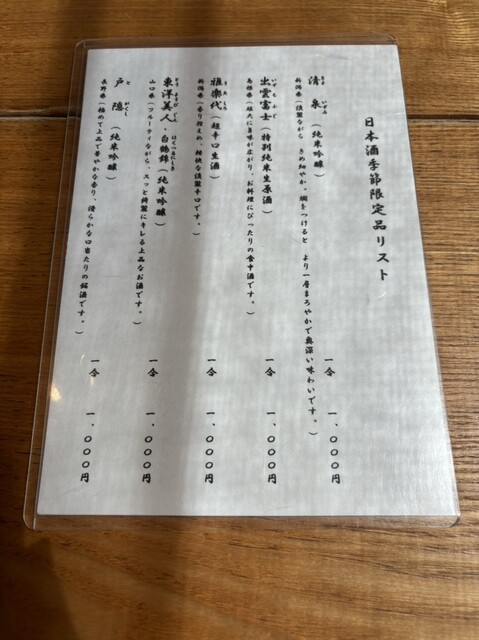 日本酒季節限定品リスト
清泉（純米吟醸）
新潟県（淡麗ながら、きめ細やか。燗をつけると、より一層まろやかで奥深い味わいです。）
一合 一、〇〇〇円
いずもふじ
出雲富士（特別純米生原酒）
島根県（雄大に旨味が広がり、お料理にぴったりの食中酒です。）
一合 一、〇〇〇円
うたしろ
雅楽代（超辛口生酒）
新潟県（香り控えめ、軽快な淡麗辛口です。）
一合 一、〇〇〇円
とうようびじん はくつるにしき
東洋美人 白鶴錦（純米吟醸）
山口県（フルーティながら、スッと綺麗にキレる上品なお酒です。）
一合 一、〇〇〇円
とがくし
戸隠（純米吟醸）
長野県（極めて上品で華やかな香り、滑らかな口当たりの銘酒です。）
一合 一、〇〇〇円